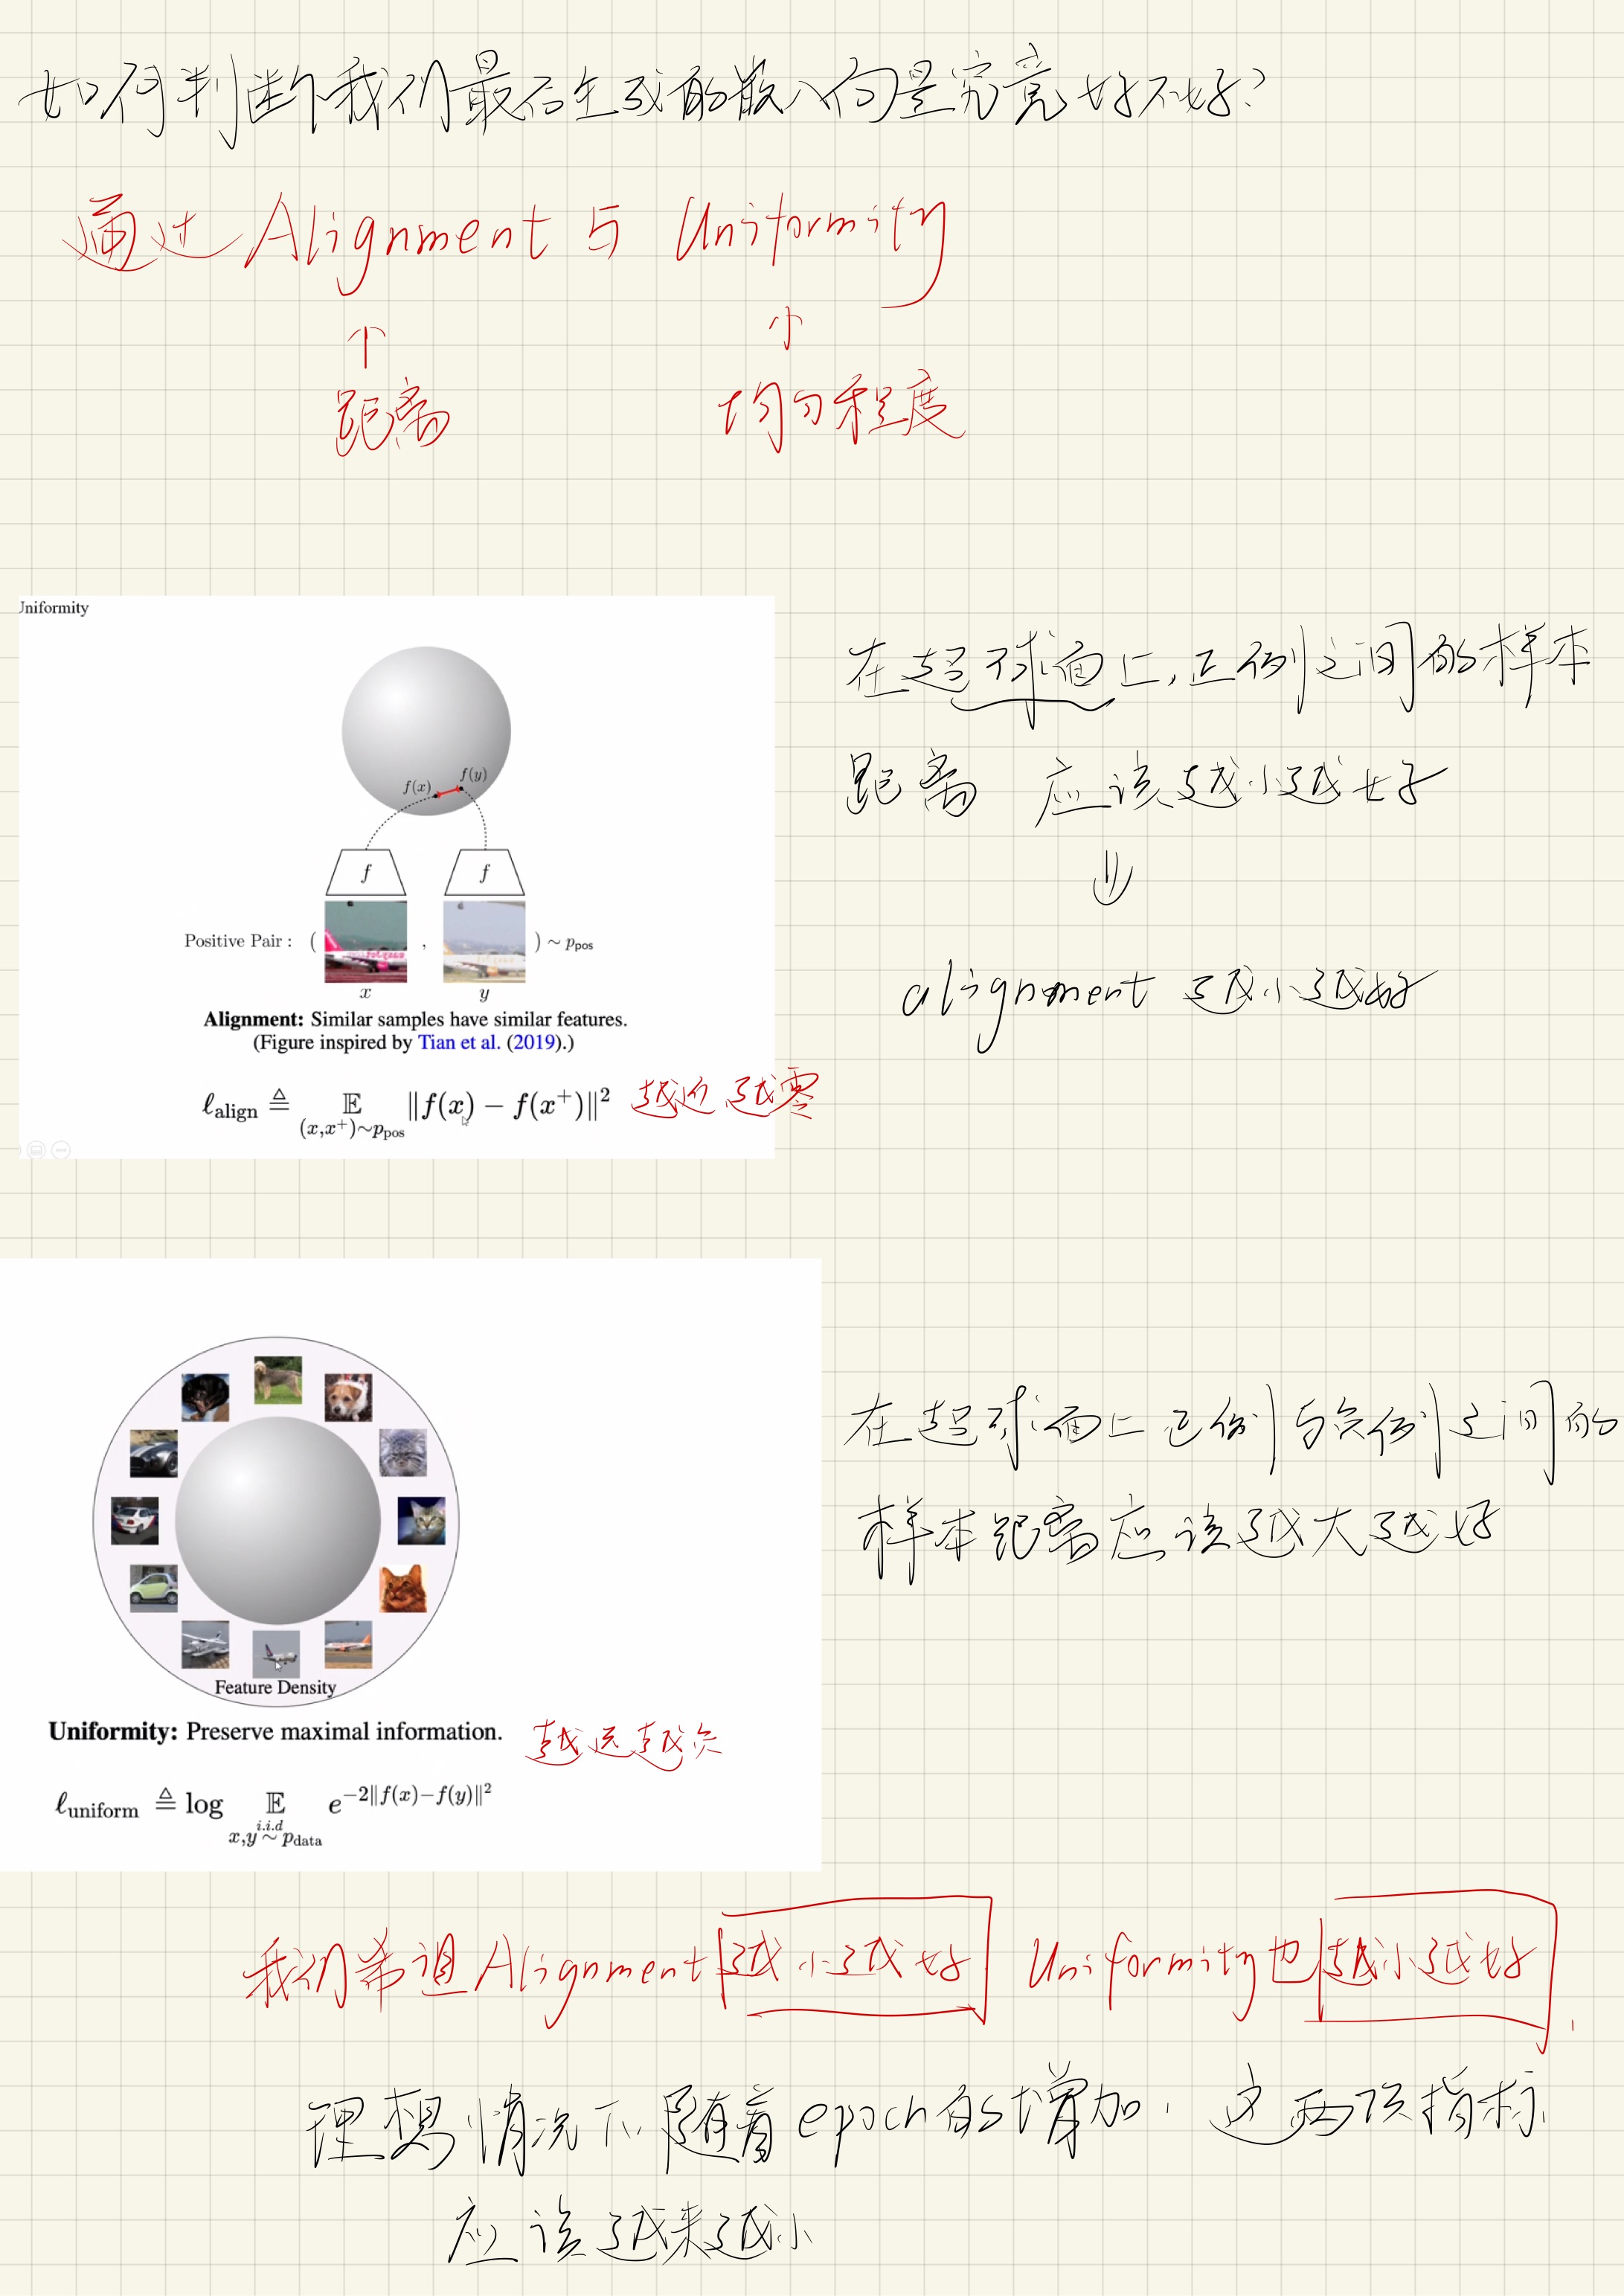 如何判断我们最后生成的嵌入向量究竟好不好?
通过 Alignment 与 Uniformity
↑ ↑
距离 均匀程度
Uniformity
f(x) f(y)
f f
Positive Pair : ( , ) ∼ p_pos
x y
Alignment: Similar samples have similar features.
(Figure inspired by Tian et al. (2019).)
ℓ_align ≜ 𝔼_{(x,x⁺)∼p_pos} ‖f(x) − f(x⁺)‖² 越近越零
在超球面上,正例之间的样本
距离 应该越小越好
⇓
alignment 越小越好
Feature Density
Uniformity: Preserve maximal information. 越远越负
ℓ_uniform ≜ log 𝔼_{x,y i.i.d ∼ p_data} e^{−2‖f(x)−f(y)‖²}
在超球面上正例与负例之间的
样本距离应该越大越好
我们希望 Alignment 越小越好 Uniformity也越小越好.
理想情况下,随着epoch的增加,这两项指标
应该越来越小